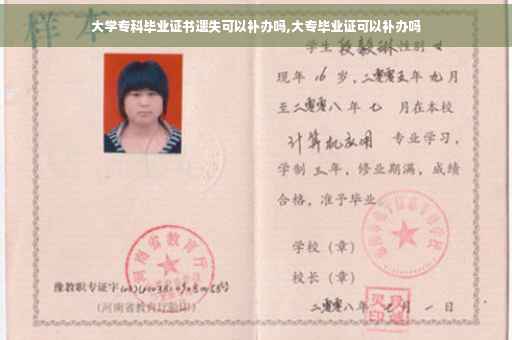 大学专科毕业证书遗失可以补办吗,大专毕业证可以补办吗
样本
学生段毅琳性别女
现年16岁，二零零五年九月
至二零零八年七月在本校
计算机应用 专业学习，
学制三年，修业期满，成绩
合格，准予毕业。
学校（章）
校长（章）
二零零八年七月一日
河南省教育厅
豫教职专证字
（河南省教育厅验印）